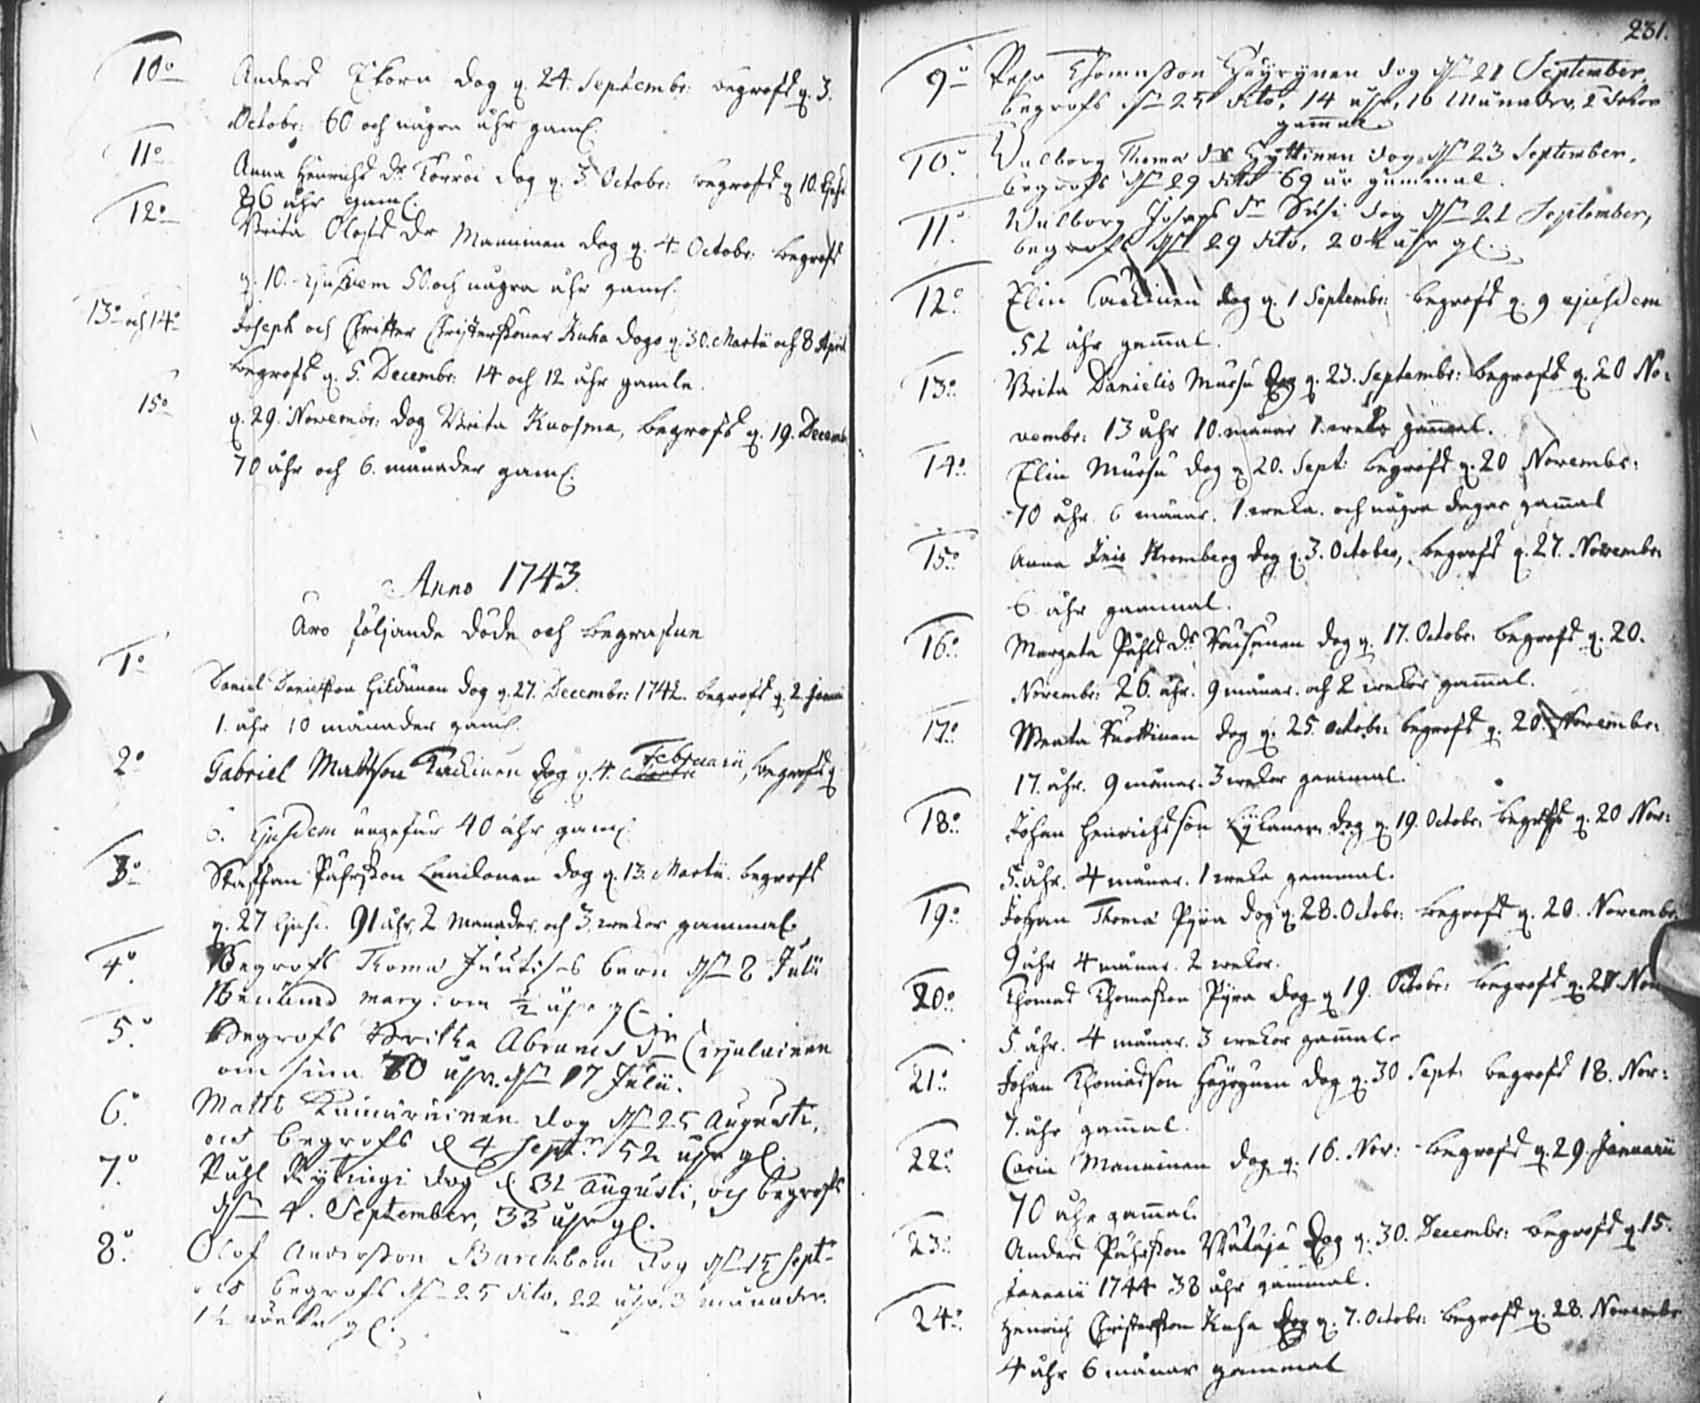 10o Anders Ikorn dog d. 24. Septembr: begrofs d. 3.
Octobr: 60 och några åhr gam:
11o Anna Henrichs dr Torröi dog d. 3 Octobr: begrofs d. 10. Ejusd.
26 åhr gam:
12o Brita Olofs dr Manninen dog d. 4 Octobr: begrofs
d. 10. Ejusdem 50 och några åhr gam:
13o och 14o Joseph och Christer Christerssöner Kuha dogo d. 30. Martii och 8 April
begrofs d. 5. Decembr: 14 och 12 åhr gamle.
15o d. 29. Novembr: dog Brita Kuosma, begrofs d. 19. Decemb
70 åhr och 6. månader gam:
Anno 1743.
Äro följande döde och begrafne
1o Daniel Danielsson Hildunen dog d. 27. Decembr: 1742. begrofs d. 2. Janu
1. åhr 10 månader gam:
2o Gabriel Mattson Kackinen dog d. 4. Februarii, begrofs d.
6. Ejusdem ungefär 40 åhr gam:
3o Staffan Påhrsson Lemilonen dog d. 13. Martii. begrofs
d. 27 Ejusd. 91 åhr, 2 Månader och 3. wekor gammal.
4o Begrofs Thoma Juutises barn dn 2 Julii
om ½ åhr gl.
5o Begrofs Britha Abrams dr Carjalainen
om sina 70 åhr. dn 17 Julii.
6o Matts Kaimurainen dog dn 25 Augusti,
och begrofs d 4 Septr. 52 åhr gl.
7o Påhl Kylingi dog d 31 Augusti, och begrofs
dn 4. September, 33 åhr gl.
8o Olof Andersson Barckbom dog dn 15 Septr
och begrofs dn 25 dito, 22 åhr, 3 månader
1½ wecka gl.
231.
9o Pehr Thomasson Häyrynen dog dn 21 September,
begrofs dn 25 dito, 14 åhr, 10 Månader, 2 wekor
gammal.
10o Walborg Thoma dr Hyttinen dog dn 23 September.
begrofs dn 29 dito 69 år gammal.
11o Walborg Josephs dr Susi dog dn 21 September,
begrofs dn 29 dito, 20 ½ åhr gl.
12o Elin Kackinen dog d. 1 Septembr: begrofs d. 9 ejusdem
52 åhr gammal.
13o Brita Danielis Mursu dog d. 23. Septembr: begrofs d. 20 No-
vembr: 13 åhr 10. månar 1. weko gammal.
14o Elin Mursu dog d 20. Sept: begrofs d. 20 Novembr:
70 åhr. 6 månar. 1. weka. och några dagar gammal
15o Anna Stromberg dog d. 3. October, begrofs d. 27. Novembr:
6. åhr gammal.
16o Margeta Påhls dr Rausunen dog d. 17. Octobr: begrofs d. 20.
Novembr: 26. åhr. 9 månar. och 2 wekor gammal.
17o Marta Turkinen dog d. 25. octobr: begrofs d. 20. Novembr:
17. åhr. 9 månar. 3 wekor gammal.
18o Johan Henrichsson Lylander dog d. 19. Octobr: begrofs d. 20 Nov:
5. åhr. 4 månar. 1 weka gammal.
19o Johan Thoma Pyra dog d. 28. Octobr: begrofs d. 20. Novembr:
9 åhr 4 månar. 2 wekor.
20o Thomas Thomasson Pyra dog d 19. Octobr: begrofs d. 20 Nov
5. åhr. 4 månar. 3 wekor gammal.
21o Johan Thomasson Häyrynen dog d. 30 Sept: begrofs 18. Nov:
7. åhr gammal.
22o Carin Manninen dog d: 16. Nov: begrofs d. 29. Januarii
70 åhr gammal.
23o Anders Påhrsson Wataja dog d. 30. Decembr: begrofs d. 15.
Januarii 1744 38 åhr gammal.
24o Henrich Christersson Kuha dog d. 7. Octobr: begrofs d. 28. Novembr
4 åhr 6 månar gammal